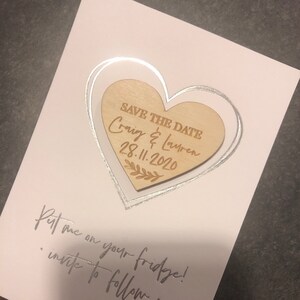 SAVE THE DATE
Craig & Lauren
28.11.2020
Put me on your fridge!
· invite to follow